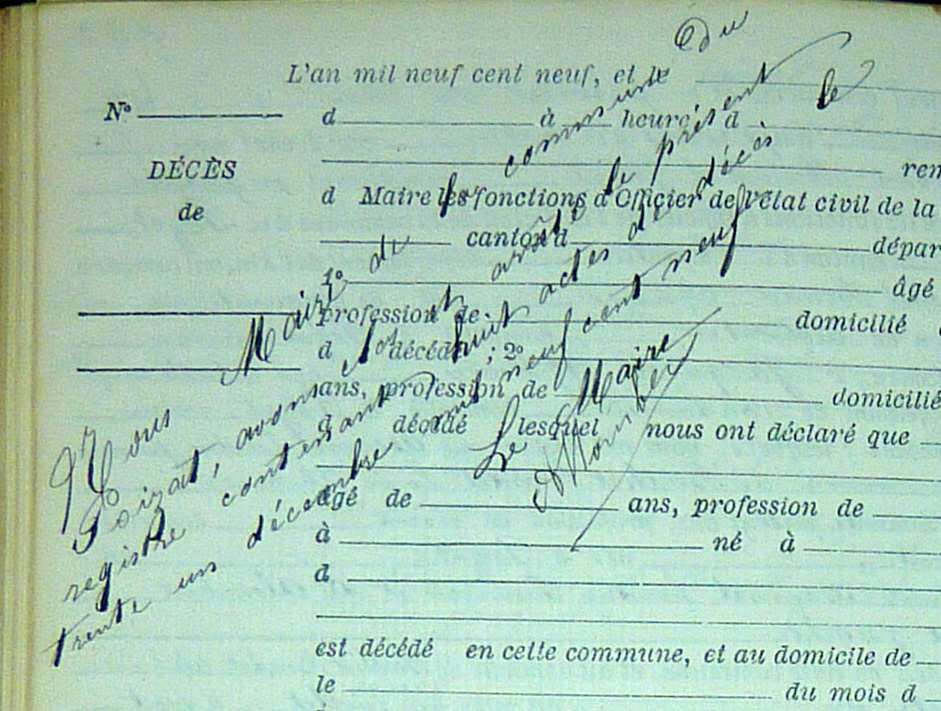 L'an mil neuf cent neuf, et le
N°
d à heure d
DÉCÈS
de
ren
d Maire les fonctions d'Officier de l'état civil de la
canton d dépar
1° âgé
profession de domicilié
d décédé ; 2°
ans, profession de domicilié
d décédé lesquel nous ont déclaré que
âgé de ans, profession de
à né à
d
est décédé en cette commune, et au domicile de
le du mois d
Nous Maire de la commune du
Poizat, avons clos et arrêté le présent
registre contenant huit actes de décès le
trente un décembre mil neuf cent neuf
Le Maire